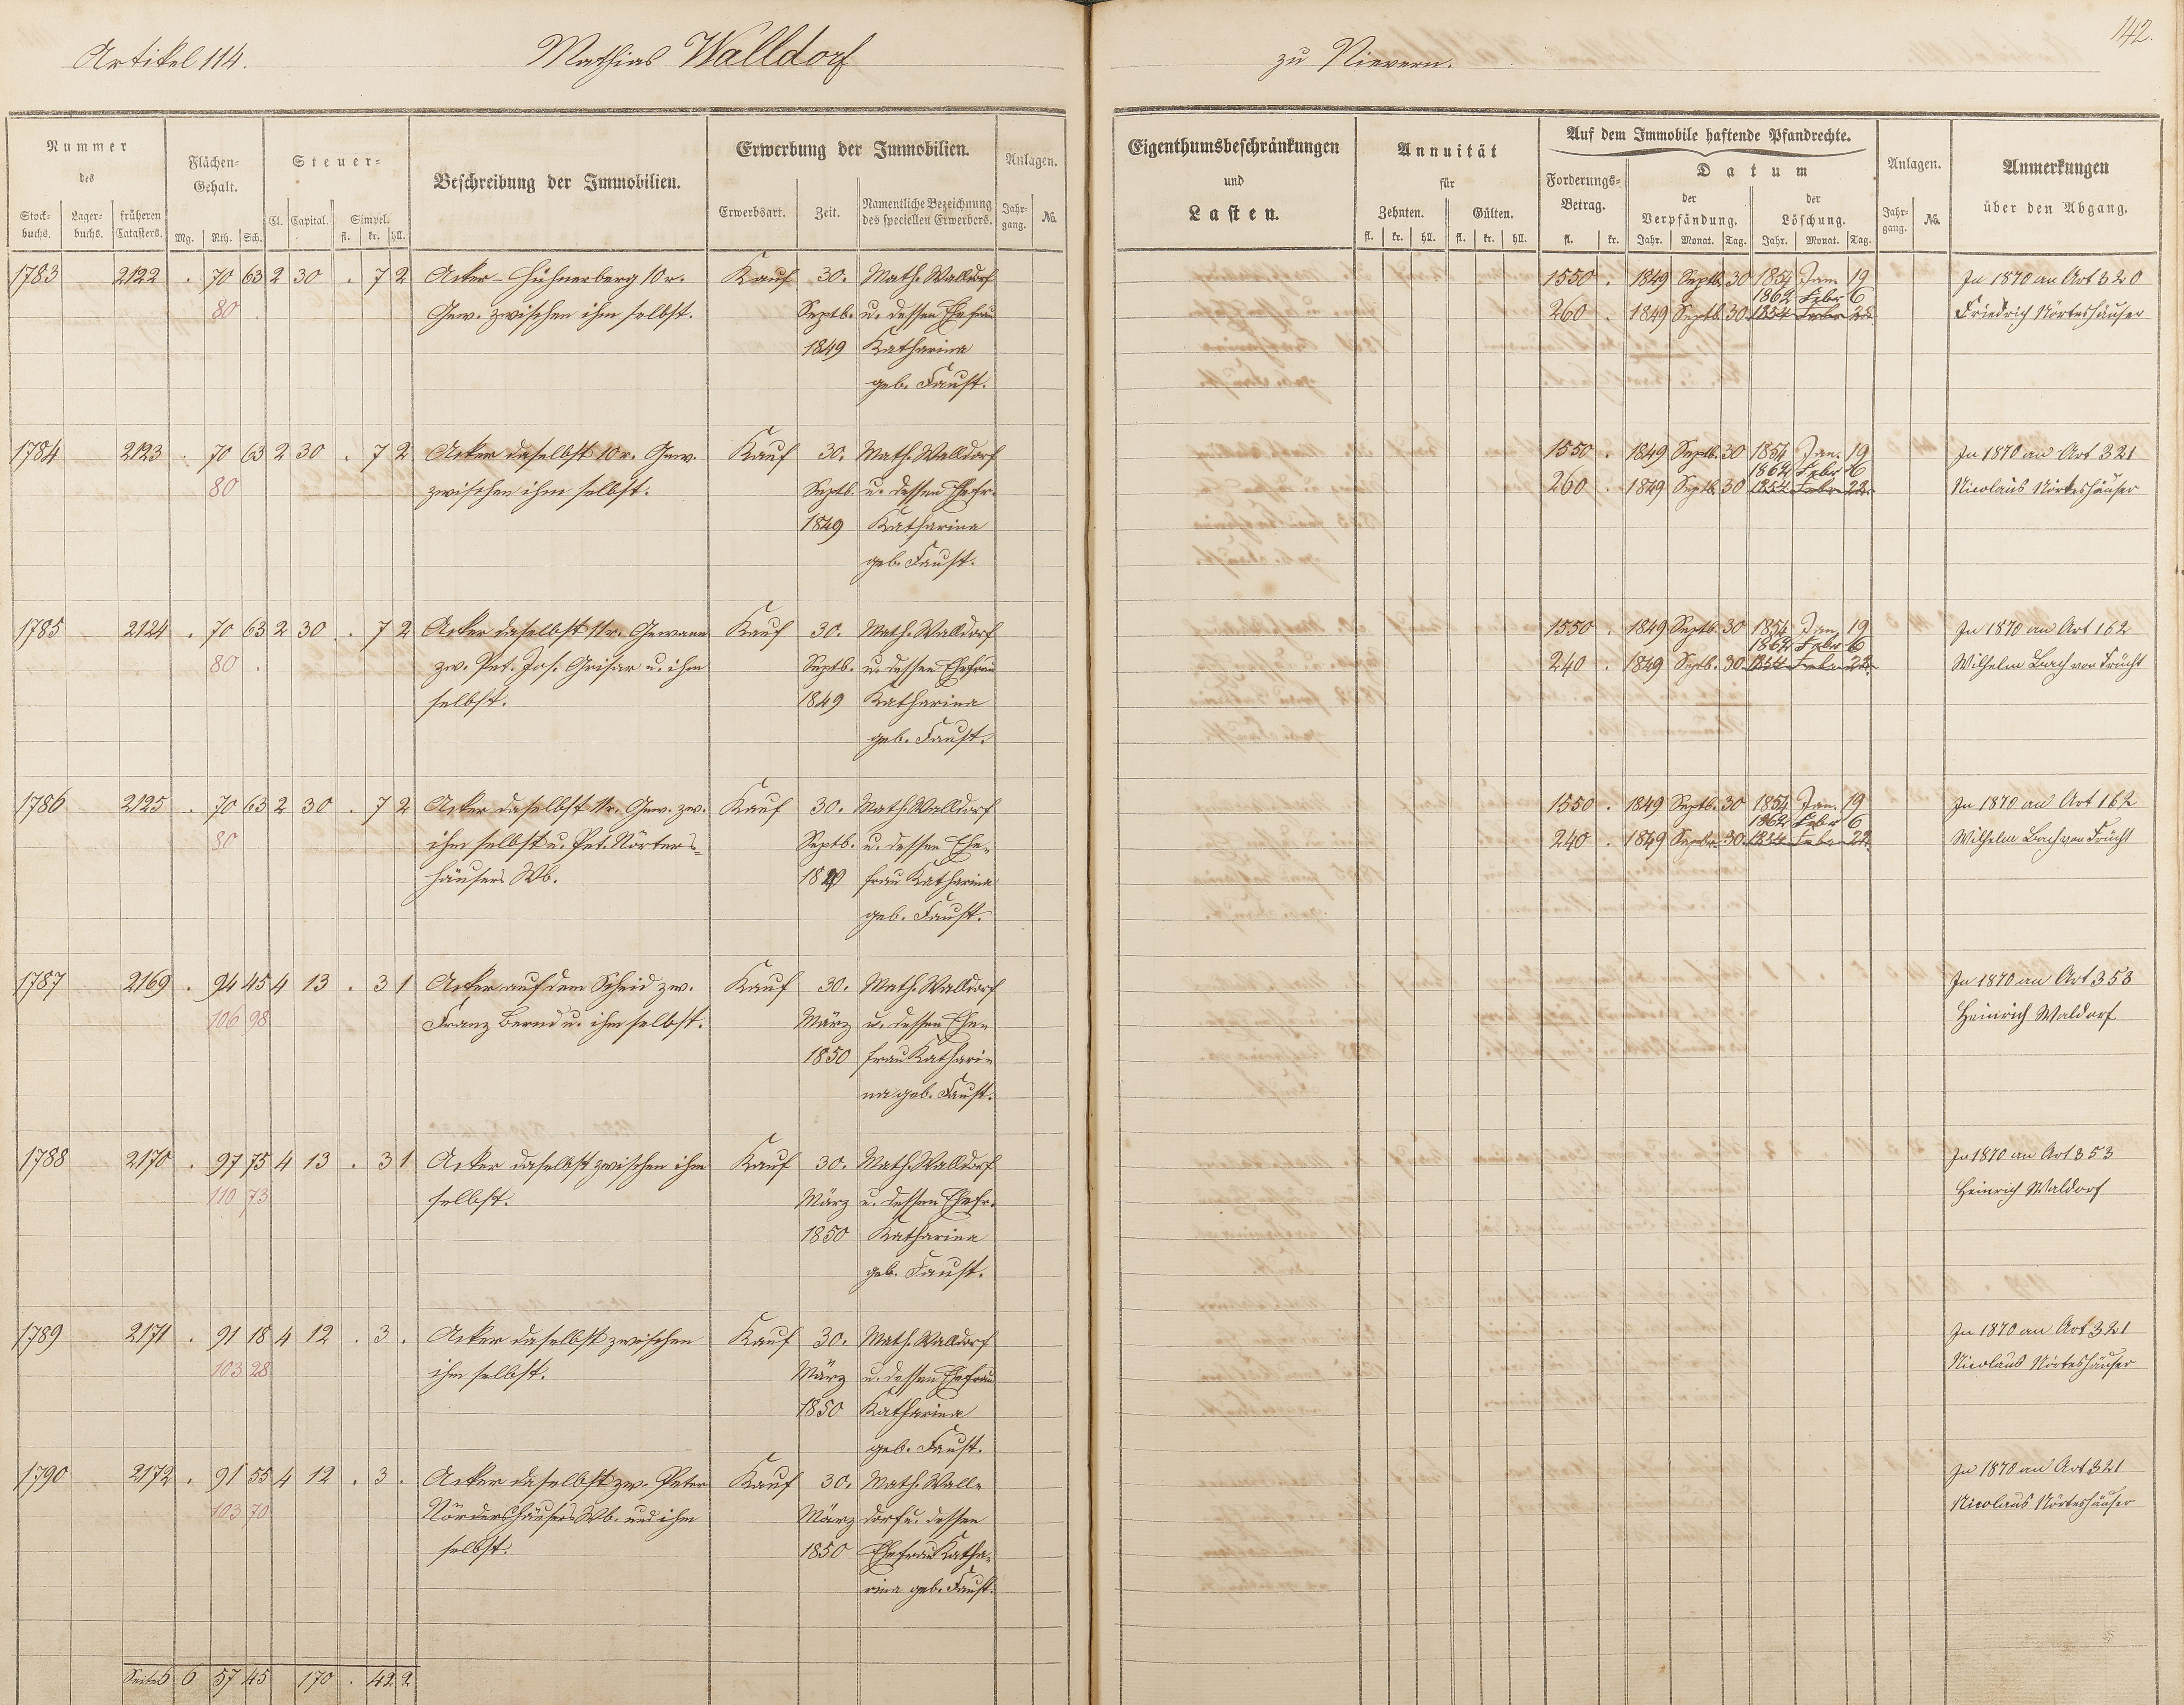 142.
Artikel 114. Mathias Walldorf zu Nievern.
Nummer des
Stock-buchs. Lager-buchs. früheren Catasters.
Flächen-Gehalt.
Mg. Rth. Sch.
Steuer-
Cl. Capital. Simpel.
fl. kr. hll.
Beschreibung der Immobilien.
Erwerbung der Immobilien.
Erwerbsart. Zeit. Namentliche Bezeichnung des speciellen Erwerbers.
Anlagen.
Jahr-gang. No.
Eigenthumsbeschränkungen
und
Lasten.
Annuität
für
Zehnten. Gülten.
fl. kr. hll. fl. kr. hll.
Auf dem Immobile haftende Pfandrechte.
Forderungs-Betrag.
fl. kr.
Datum
der Verpfändung. der Löschung.
Jahr. Monat. Tag. Jahr. Monat. Tag.
Anlagen.
Jahr-gang. No.
Anmerkungen
über den Abgang.
1783 2122 . 70 63 2 30 . 7 2 Acker-Hühnerberg 10 r. Kauf 30. Math. Walldorf 1550 . 1849 Septb. 30 1854 Jan. 19 In 1870 an Art 320
1862 Febr 6
80 . Gew. zwischen ihm selbst. Septb. u. dessen Ehefrau 260 . 1849 Septb. 30 1854 Febr 22. Friedrich Nörteshäuser
1849 Katharina
geb. Faust.
1784 2123 . 70 63 2 30 . 7 2 Acker daselbst 10 r. Gew. Kauf 30. Math. Walldorf 1550 . 1849 Septb. 30 1854 Jan. 19 In 1870 an Art 321
1862 Febr 6
80 zwischen ihm selbst. Septb. u. dessen Ehefr. 260 . 1849 Septb. 30 1854 Febr. 22. Nicolaus Nörteshäuser
1849 Katharina
geb. Faust.
1785 2124 . 70 63 2 30 . 7 2 Acker daselbst 11 r. Gewann Kauf 30. Math. Walldorf 1550 . 1849 Septb. 30 1854 Jan. 19 In 1870 an Art 162
1862 Febr 6
80 . zw. Pet. Jos. Grisar u. ihm Septb. u. dessen Ehefrau 240 . 1849 Septb. 30 1854 Febr 22. Wilhelm Bach von Frücht
selbst. 1849 Katharina
geb. Faust.
1786 2125 . 70 63 2 30 . 7 2 Acker daselbst 11 r. Gew. zw. Kauf 30. Math. Walldorf 1550 . 1849 Septb. 30 1854 Jan. 19 In 1870 an Art 162
1862 Febr 6
80 ihm selbst u. Pet. Nörters- Septb. u. dessen Ehe- 240 . 1849 Septbr. 30. 1854 Febr 22. Wilhelm Bach von Frücht
häusers Wb. 1849 frau Katharina
geb. Faust.
1787 2169 . 94 45 4 13 . 3 1 Acker auf dem Scheid zw. Kauf 30. Math. Walldorf In 1870 an Art 353
106 98 Franz Bernd u. ihm selbst. März u. dessen Ehe- Heinrich Waldorf
1850 frau Kathari-
na geb. Faust.
1788 2170 . 97 75 4 13 . 3 1 Acker daselbst zwischen ihm Kauf 30. Math. Walldorf In 1870 an Art 353
110 73 selbst. März u. dessen Ehefr. Heinrich Waldorf
1850 Katharina
geb. Faust.
1789 2171 . 91 18 4 12 . 3 . Acker daselbst zwischen Kauf 30. Math. Walldorf In 1870 an Art 321
103 28 ihm selbst. März u. dessen Ehefrau Nicolaus Nörteshäuser
1850 Katharina
geb. Faust.
1790 2172 . 91 55 4 12 . 3 . Acker daselbst zw. Peter Kauf 30. Math. Wall- In 1870 an Art 321
103 70 Nördershäusers Wb. und ihm März dorf u. dessen Nicolaus Nörteshäuser
selbst. 1850 Ehefrau Katha-
rina geb. Faust.
6 57 45 170 . 42 2